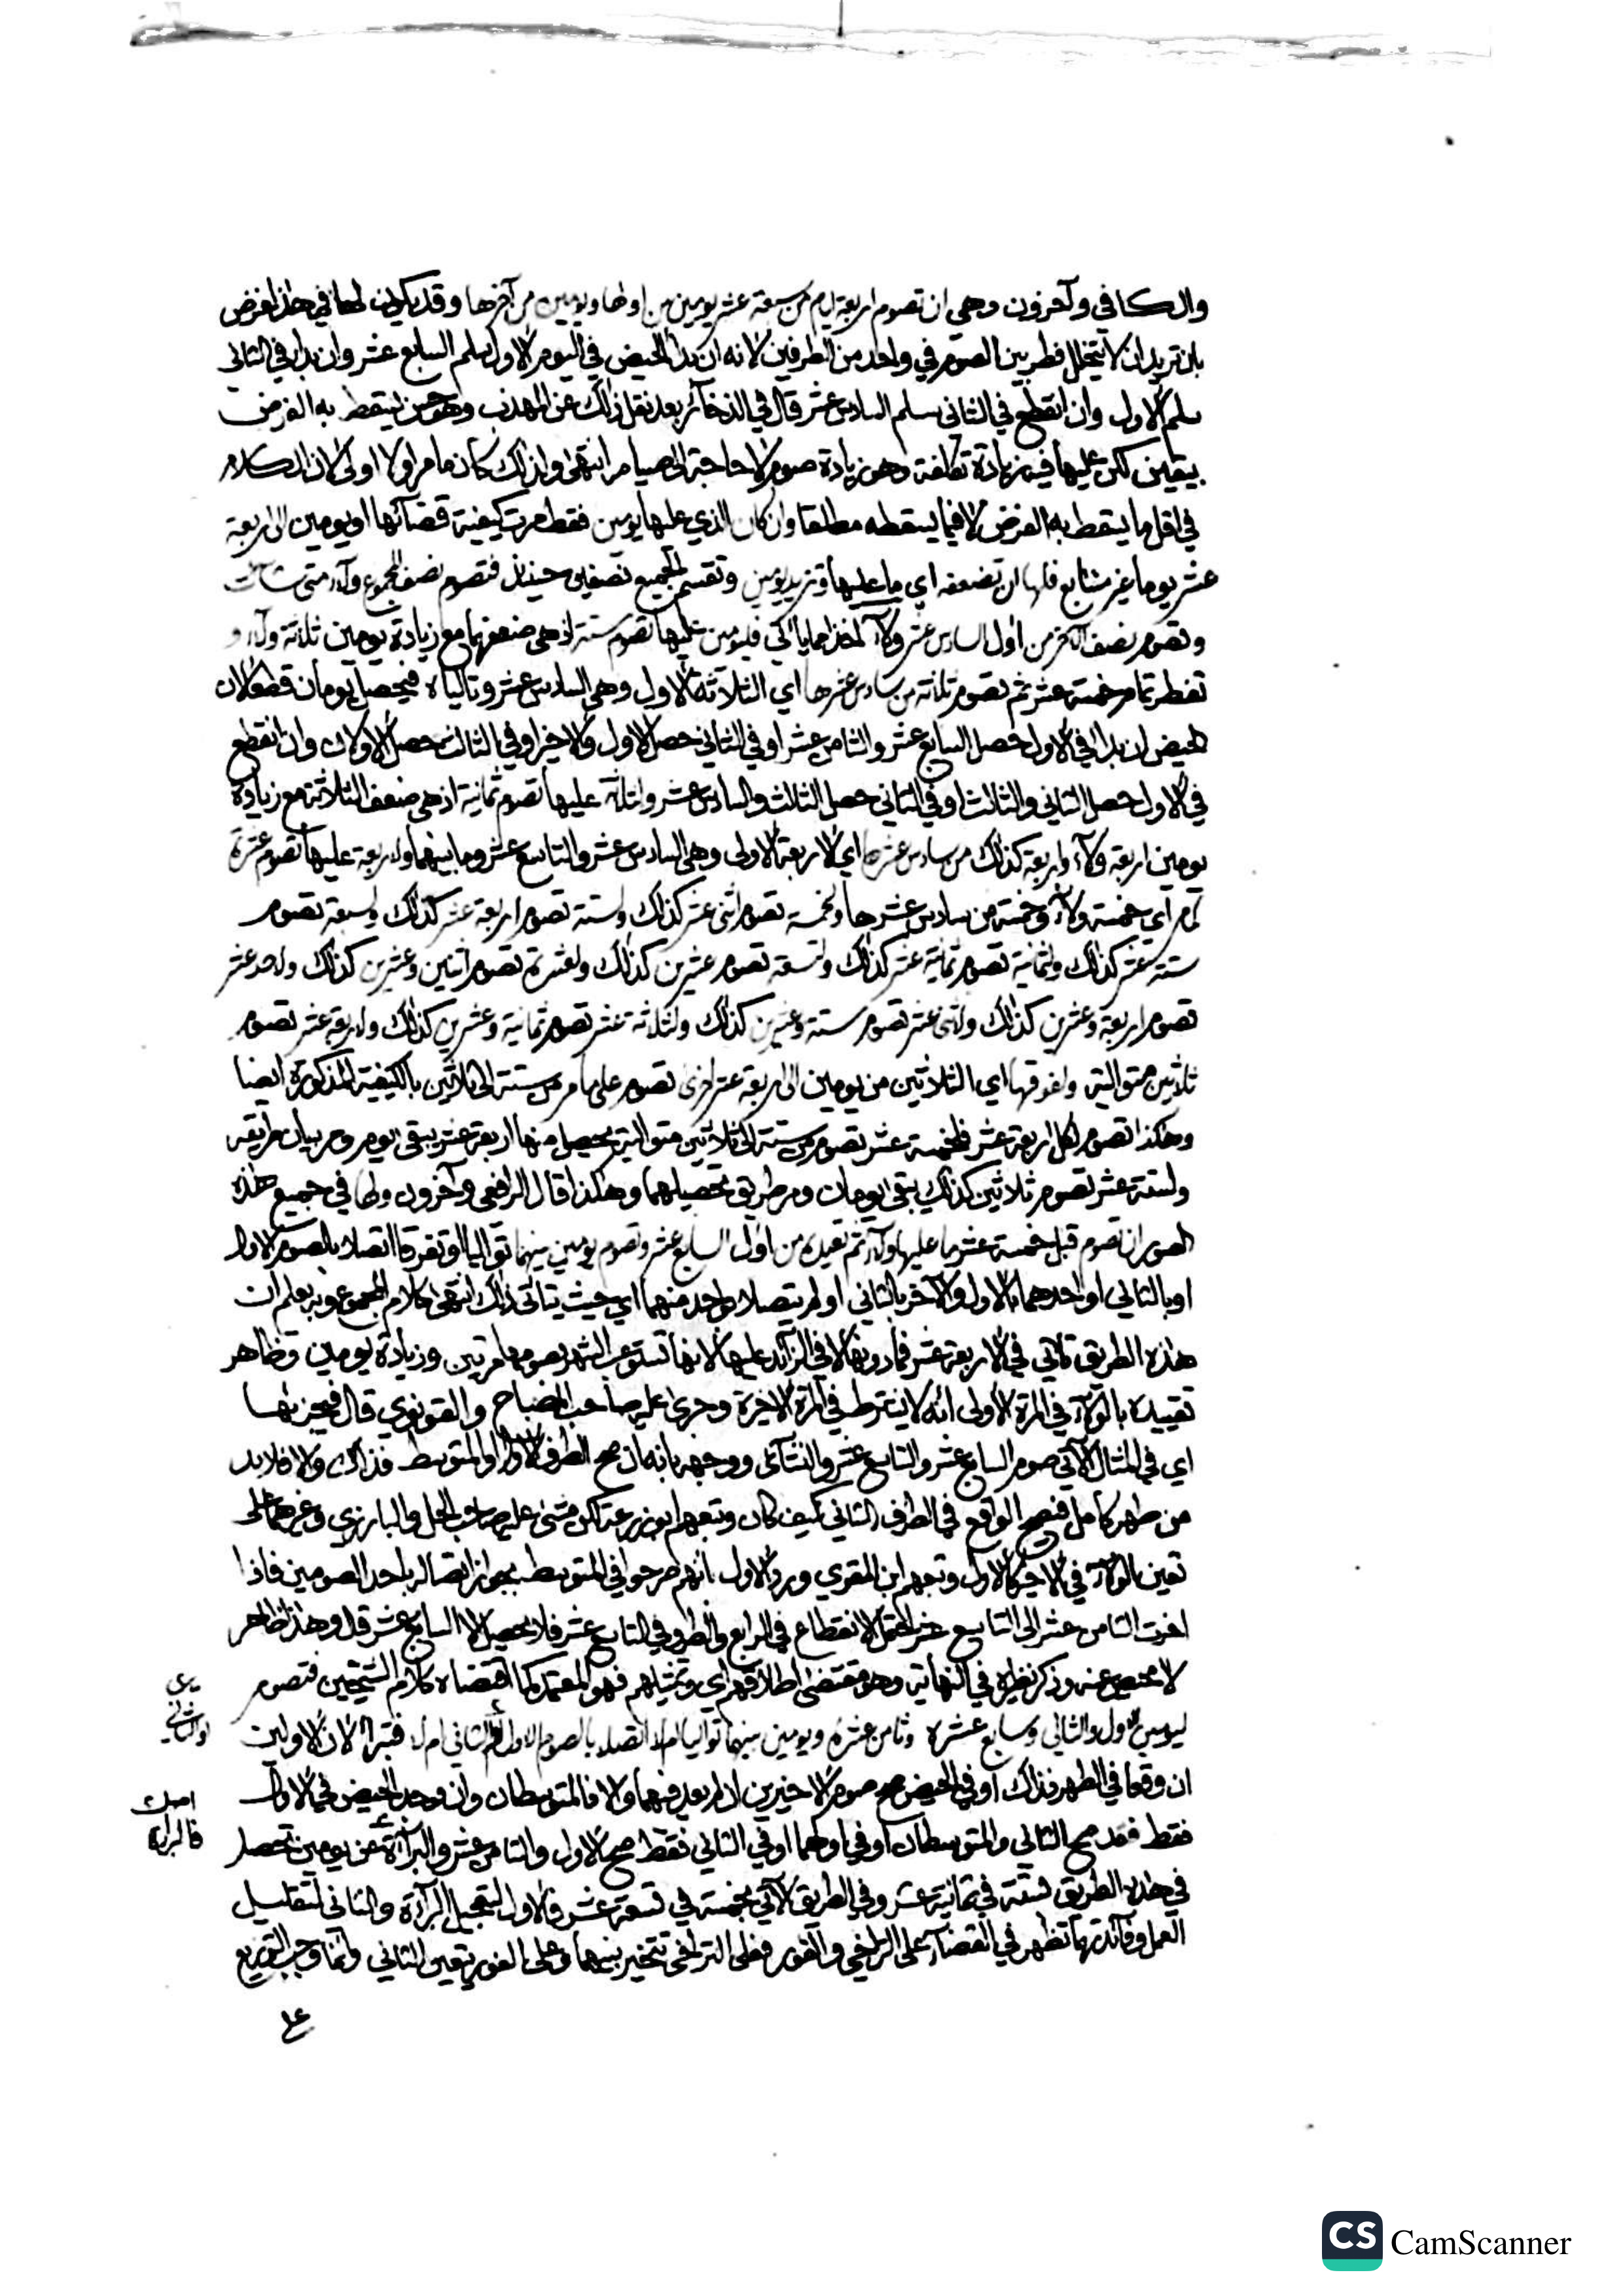 والكافي وآخرون وهي ان تصوم اربعة ايام من سبعة عشر يومين من اولها ويومين من آخرها وقد يكون لها في هذا غرض
بان تريد ان لا يتخلل فطر بين الصوم في واحد من الطرفين لانه ان بدا الحيض في اليوم الاول سلم السابع عشر وان بدا في الثاني
سلم الاول وان انقطع في الثاني سلم السادس عشر قال في الذخائر بعد نقل ذلك عن المهذب وهو حسن ليسقط به الفرض
بيقين لكن عليها فيه زيادة تكلفة وهو زيادة صوم لا حاجة الى صيامه انتهى ولذلك كان ما مر اولا اولى لان الكلام
في اقل ما يسقط به الفرض لا فيما يسقطه مطلقا وان كان الذي عليها يومين فقط مرت كيفية قضائها او يومين الى اربعة
عشر يوما غير متتابع فلها ان تضعفه اي ما عليها وتزيد يومين وتقسم الجميع نصفين حينئذ فتصوم نصف المجموع ولاء متى شاءت
وتصوم نصف الآخر من اول السادس عشر ولاء اخذا مما ياتي فليومين عليها تصوم ستة اذ هي ضعفهما مع زيادة يومين ثلاثة ولاء و
تفطر تمام خمسة عشر ثم تصوم ثلاثة من سادس عشرها اي الثلاثة الاول وهي السادس عشر وتالياه فيحصل يومان قطعا لان
الحيض ان بدا في الاول حصل السابع عشر والثامن عشر او في الثاني حصل الاول والاخير او في الثالث حصل الاولان وان انقطع
في الاول حصل الثاني والثالث او في الثاني حصل الثالث والسادس عشر ولثلاثة عليها تصوم ثمانية اذ هي ضعف الثلاثة مع زيادة
يومين اربعة ولاء واربعة كذلك من سادس عشرها اي الاربعة الاولى وهي السادس عشر والتاسع عشر وما بينهما ولاربعة عليها تصوم عشرة
لما مر اي خمسة ولاء وخمسة من سادس عشرها ولخمسة تصوم اثنى عشر كذلك ولستة تصوم اربعة عشر كذلك ولسبعة تصوم
ستة عشر كذلك ولثمانية تصوم ثمانية عشر كذلك ولتسعة تصوم عشرين كذلك ولعشرة تصوم اثنين وعشرين كذلك ولاحد عشر
تصوم اربعة وعشرين كذلك ولاثنى عشر تصوم ستة وعشرين كذلك ولثلاثة عشر تصوم ثمانية وعشرين كذلك ولاربعة عشر تصوم
ثلاثين متوالية ولفوقها اي الثلاثين من يومين الى اربعة عشر اخرى تصوم على ما مر من ستة الى ثلاثين بالكيفية المذكورة ايضا
وهكذا تصوم لكل اربعة عشر فلخمسة عشر تصوم من ستة الى ثلاثين متوالية يحصل منها اربعة عشر يبقى يوم ومر بيان طريقه
ولستة عشر تصوم ثلاثين كذلك يبقى يومان ومر طريق تحصيلهما وهكذا قال الرافعي وآخرون ولها في جميع هذه
الصور ان تصوم قبل خمسة عشر ما عليها ولاء ثم تعيده من اول السابع عشر وتصوم يومين بينهما تواليا او تفرقا اتصلا بالصوم الاول
او بالثاني او احدهما بالاول والآخر بالثاني او لم يتصلا بواحد منهما اي حيث يتاتى ذلك انتهى كلام المجموع وبه يعلم ان
هذه الطريق تاتي في الاربعة عشر فما دونها لا في الزائد عليها لانها تستوعب الشهر بصومها مرتين وزيادة يومين وظاهر
تقييده بالولاء في المرة الاولى انه لا يشترط في المرة الاخيرة وجرى عليه صاحب المصباح والقونوي قال فيجزئها
اي في المثال الآتي صوم السابع عشر والتاسع عشر ووجهه بانه ان صح الطرف الاول او المتوسط فذاك والا فلا بد
من طهر كامل فيصح الواقع في الطرف الثاني كيف كان وتبعهم ابو زرعة لكن مشى عليه صاحب الحل والبارزي وغيرهما على
تعين الولاء في الاخير كالاول وتبعهم ابن المقري ورد الاول بانهم صرحوا في المتوسط بجواز اتصاله باحد الصومين فاذا
اخرت الثامن عشر الى التاسع عشر احتمل الانقطاع في الرابع والطرو في التاسع عشر فلا يحصل الا السابع عشر قال وهذا ظاهر
لا محيص عنه وذكر نظيره في النهاية وهو مقتضى اطلاقهم اي وتمثيلهم فهو المعتمد كما اقتضاه كلام الشيخين فتصوم
ليومين الاول والثاني وسابع عشره وثامن عشره ويومين بينهما تواليا ام لا اتصلا بالصوم الاول ام الثاني ام لا فتبرأ لان الاولين
او الثاني
ان وقعا في الطهر فذاك او في الحيض صح صوم الاخيرين ان لم يعد فيهما والا فالمتوسطان وان وجد الحيض في الاول
فقط فقد صح الثاني والمتوسطان او في اولهما او في الثاني فقط صح الاول والثامن عشر والبراءة عن يومين تحصل
في هذه الطريق بستة في ثمانية عشر وفي الطريق الآتي بخمسة في تسعة عشر والاول لتعجيل البراءة والثاني لتقليل
العمل وفائدتهما تظهر في القضاء على التراخي والفور فعلى التراخي تتخير بينهما وعلى الفور يتعين الثاني وانما وجب التوزيع